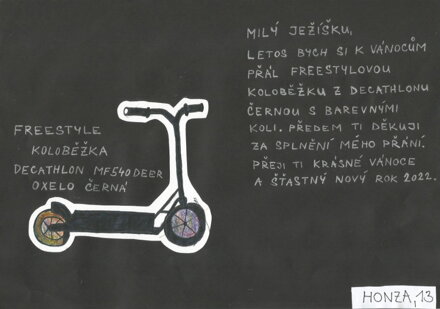 MILÝ JEŽÍŠKU,
LETOS BYCH SI K VÁNOCŮM
PŘÁL FREESTYLOVOU
KOLOBĚŽKU Z DECATHLONU
ČERNOU S BAREVNÝMI
KOLI. PŘEDEM TI DĚKUJI
ZA SPLNĚNÍ MÉHO PŘÁNÍ.
PŘEJI TI KRÁSNÉ VÁNOCE
A ŠŤASTNÝ NOVÝ ROK 2022.
FREESTYLE
KOLOBĚŽKA
DECATHLON MF540DEER
OXELO ČERNÁ
HONZA, 13